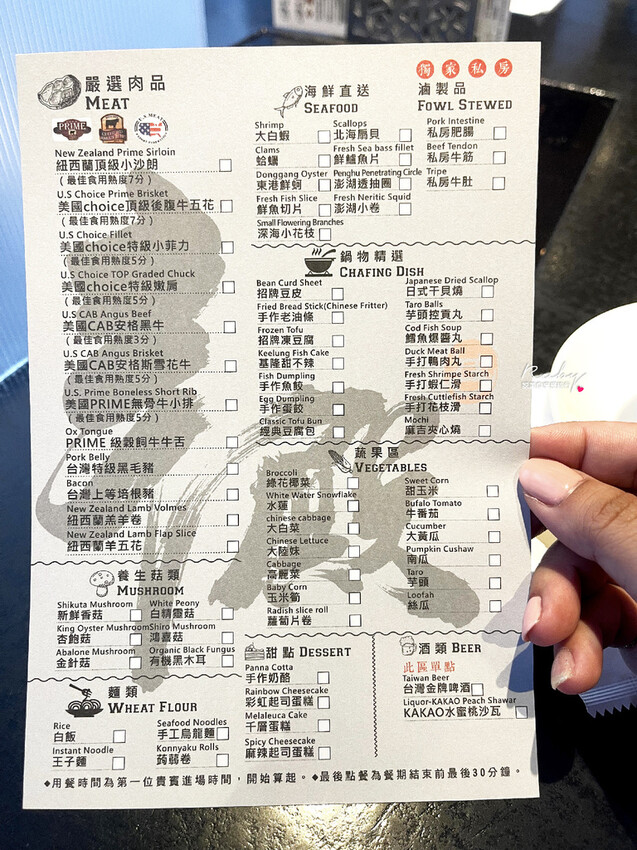 嚴選肉品
MEAT
PRIME
U.S. MEAT
New Zealand Prime Sirloin
紐西蘭頂級小沙朗
(最佳食用熟度7分)
U.S Choice Prime Brisket
美國choice頂級後腹牛五花
(最佳食用熟度7分)
U.S Choice Fillet
美國choice特級小菲力
(最佳食用熟度5分)
U.S Choice TOP Graded Chuck
美國choice特級嫩肩
(最佳食用熟度5分)
U.S CAB Angus Beef
美國CAB安格黑牛
(最佳食用熟度3分)
U.S CAB Angus Brisket
美國CAB安格斯雪花牛
(最佳食用熟度5分)
U.S. Prime Boneless Short Rib
美國PRIME無骨牛小排
(最佳食用熟度5分)
Ox Tongue
PRIME 級穀飼牛牛舌
Pork Belly
台灣特級黑毛豬
Bacon
台灣上等培根豬
New Zealand Lamb Volmes
紐西蘭羔羊卷
New Zealand Lamb Flap Slice
紐西蘭羊五花
養生菇類
MUSHROOM
Shikuta Mushroom
新鮮香菇
White Peony
白精靈菇
King Oyster Mushroom
杏鮑菇
Shiro Mushroom
鴻喜菇
Abalone Mushroom
金針菇
Organic Black Fungus
有機黑木耳
麵類
WHEAT FLOUR
Rice
白飯
Seafood Noodles
手工烏龍麵
Instant Noodle
王子麵
Konnyaku Rolls
蒟蒻卷
海鮮直送
SEAFOOD
Shrimp
大白蝦
Scallops
北海扇貝
Clams
蛤蠣
Fresh Sea bass fillet
鮮鱸魚片
Donggang Oyster
東港鮮蚵
Penghu Penetrating Circle
澎湖透抽圈
Fresh Fish Slice
鮮魚切片
Fresh Neritic Squid
澎湖小卷
Small Flowering Branches
深海小花枝
獨家私房
滷製品
FOWL STEWED
Pork Intestine
私房肥腸
Beef Tendon
私房牛筋
Tripe
私房牛肚
鍋物精選
CHAFING DISH
Bean Curd Sheet
招牌豆皮
Japanese Dried Scallop
日式干貝燒
Fried Bread Stick(Chinese Fritter)
手作老油條
Taro Balls
芋頭控貢丸
Frozen Tofu
招牌凍豆腐
Cod Fish Soup
鱈魚爆醬丸
Keelung Fish Cake
基隆甜不辣
Duck Meat Ball
手打鴨肉丸
Fish Dumpling
手作魚餃
Fresh Shrimpe Starch
手打蝦仁滑
Egg Dumpling
手作蛋餃
Fresh Cuttlefish Starch
手打花枝滑
Classic Tofu Bun
經典豆腐包
Mochi
麻吉夾心燒
蔬果區
VEGETABLES
Broccoli
綠花椰菜
Sweet Corn
甜玉米
White Water Snowflake
水蓮
Bufalo Tomato
牛番茄
chinese cabbage
大白菜
Cucumber
大黃瓜
Chinese Lettuce
大陸妹
Pumpkin Cushaw
南瓜
Cabbage
高麗菜
Taro
芋頭
Baby Corn
玉米筍
Loofah
絲瓜
Radish slice roll
蘿蔔片卷
甜點 DESSERT
Panna Cotta
手作奶酪
Rainbow Cheesecake
彩虹起司蛋糕
Melaleuca Cake
千層蛋糕
Spicy Cheesecake
麻辣起司蛋糕
酒類 BEER
此區單點
Taiwan Beer
台灣金牌啤酒
Liquor-KAKAO Peach Shawar
KAKAO水蜜桃沙瓦
◆用餐時間為第一位貴賓進場時間,開始算起。◆最後點餐為餐期結束前最後30分鐘。